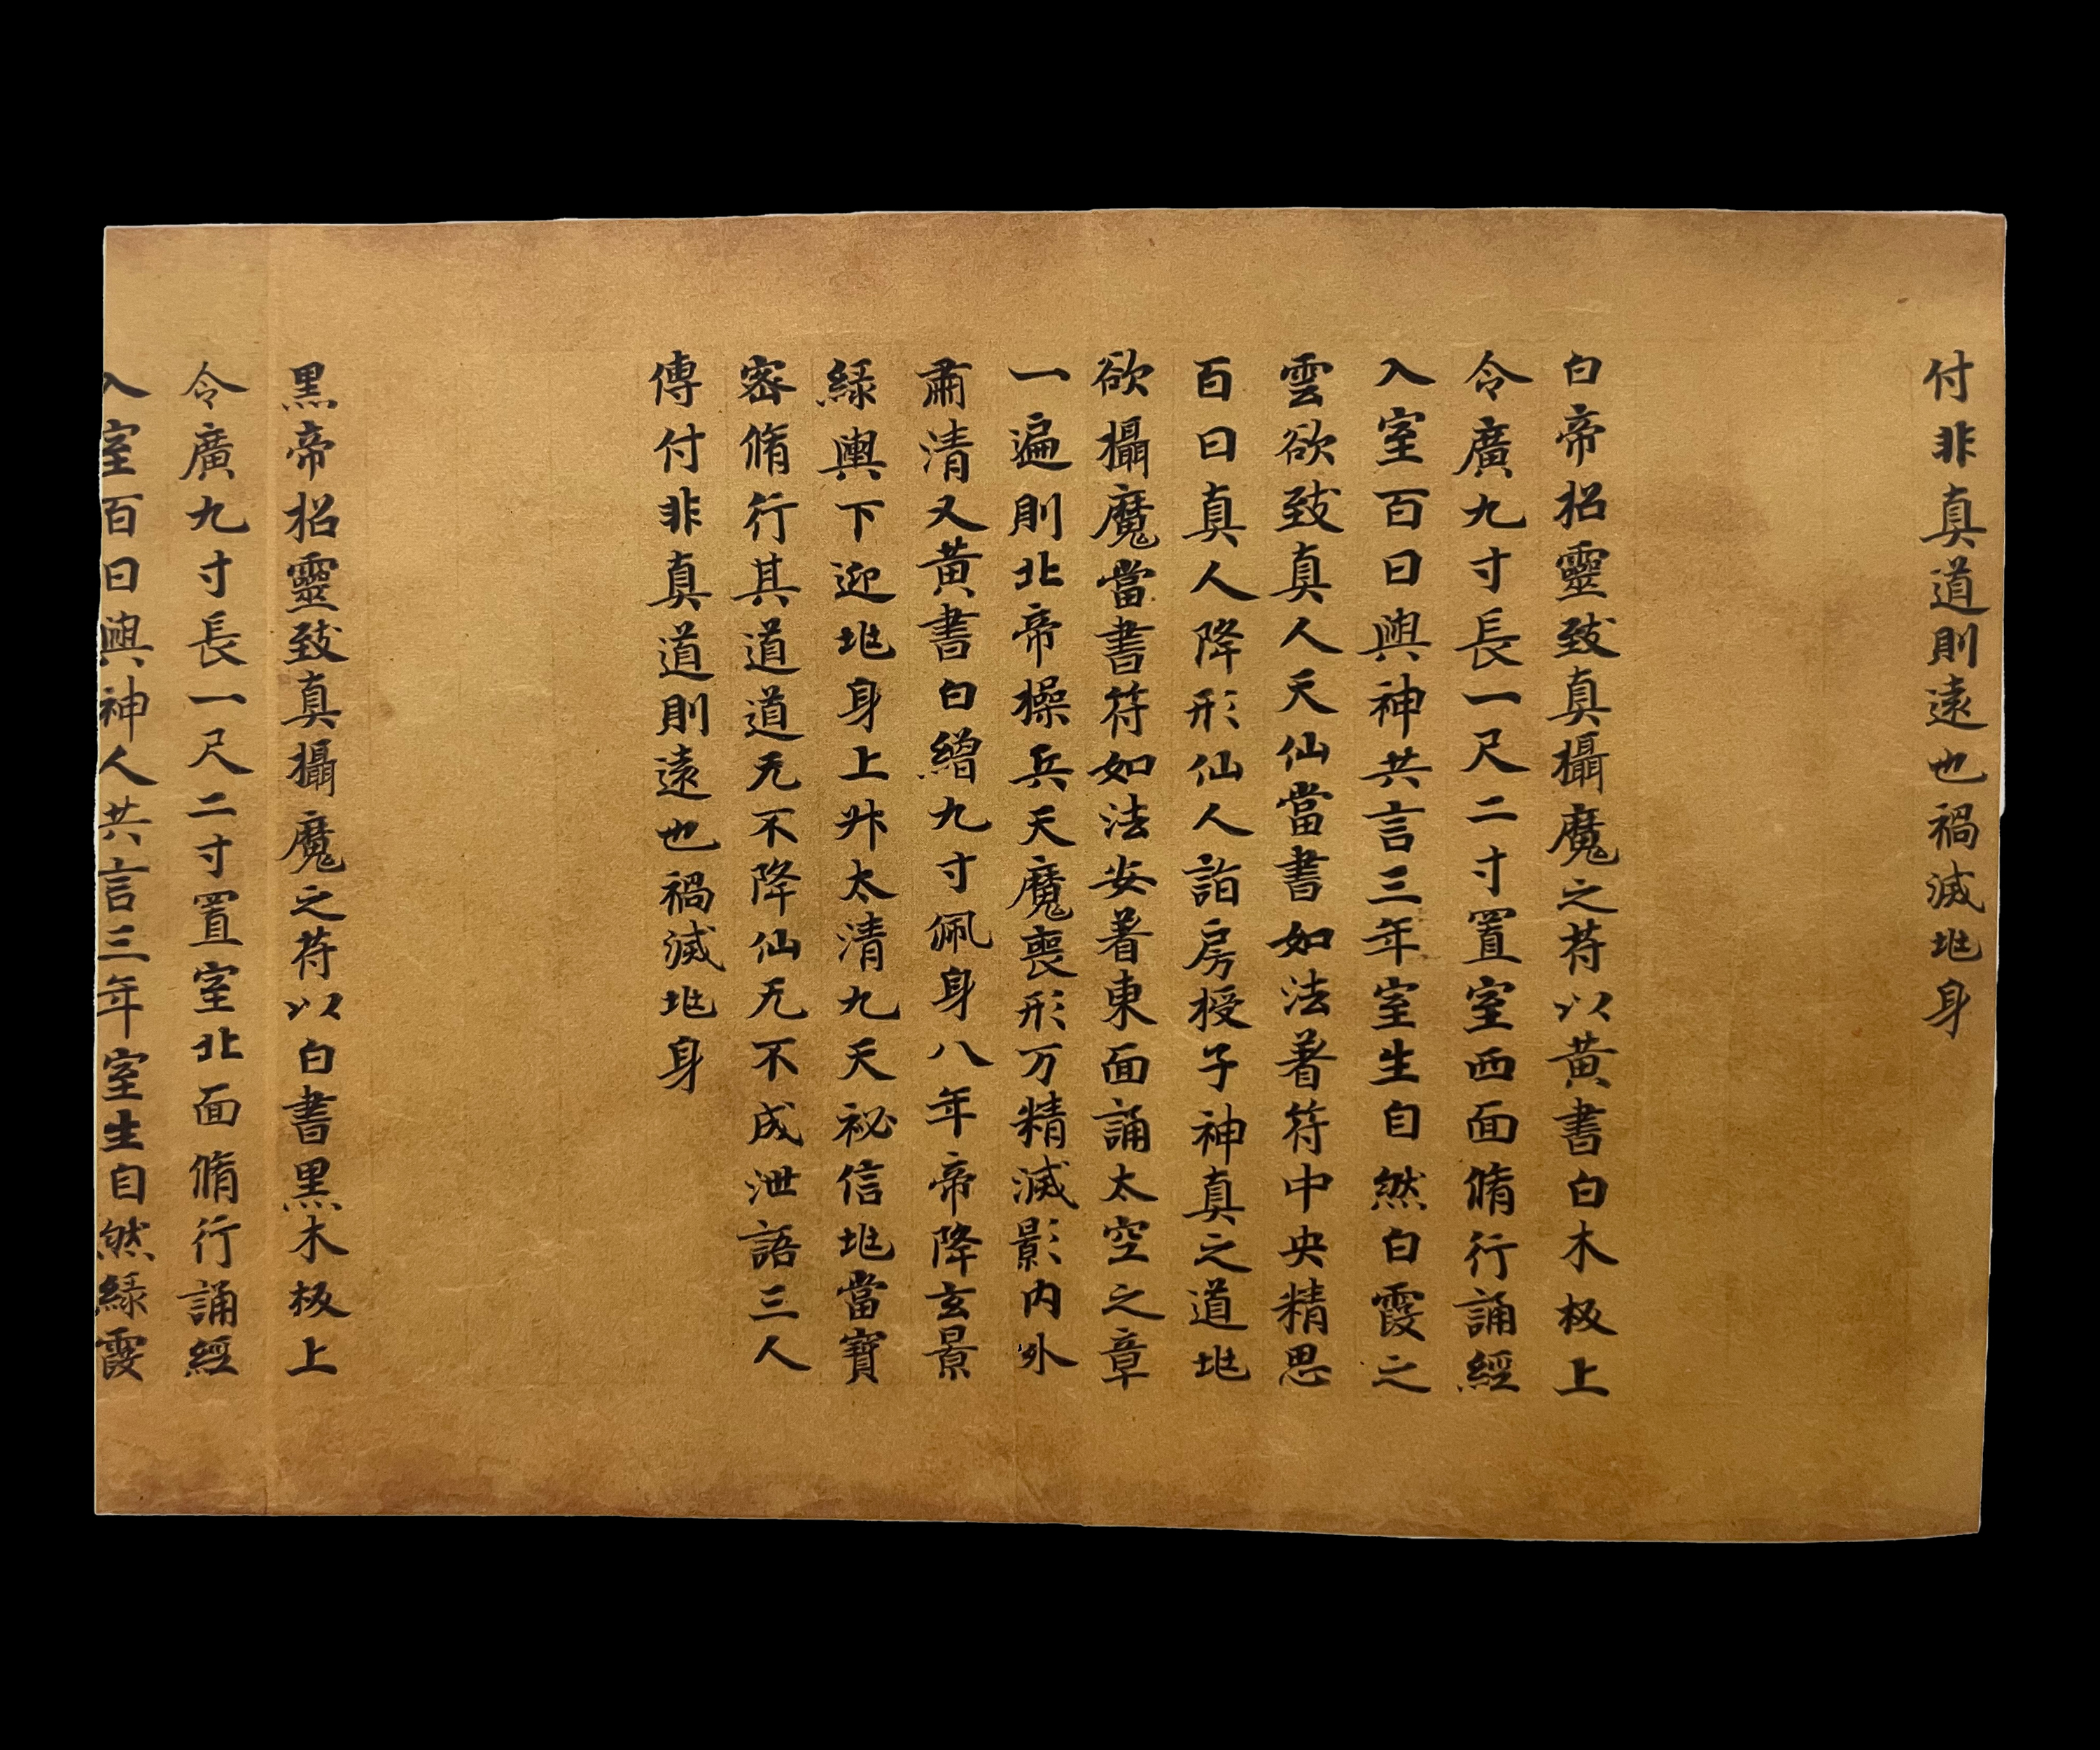 付非真道則遠也禍滅兆身
白帝招靈致真攝魔之符以黄書白木板上
令廣九寸長一尺二寸置室西面脩行誦經
入室百日與神共言三年室生自然白霞之
雲欲致真人天仙當書如法著符中央精思
百日真人降形仙人詣房授子神真之道兆
欲攝魔當書符如法安著東面誦太空之章
一遍則北帝操兵天魔喪形万精滅影内外
肅清又黄書白繒九寸佩身八年帝降玄景
緑輿下迎兆身上升太清九天祕信兆當寶
密脩行其道道无不降仙无不成泄語三人
傳付非真道則遠也禍滅兆身
黑帝招靈致真攝魔之符以白書黑木板上
令廣九寸長一尺二寸置室北面脩行誦經
入室百日與神人共言三年室生自然緑霞